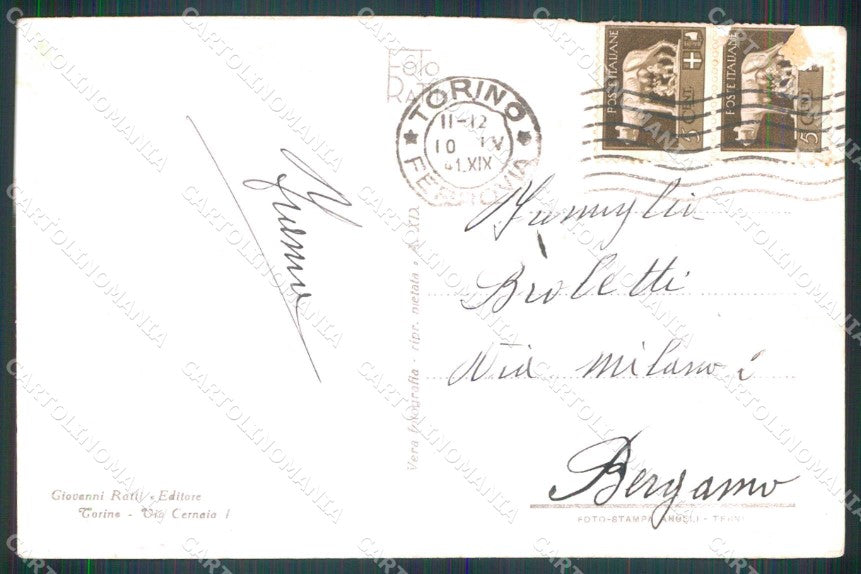 FOTO
RATTI
TORINO
11-12
10 IV
41.XIX
FERROVIA
POSTE ITALIANE
5 CENT
POSTE ITALIANE
5 CENT
Famiglia
Broletti
Via Milano
Bergamo
Vera fotografia - ripr. vietata - A. XIX
Giovanni Ratti - Editore
Torino - Via Cernaia 1
FOTO-STAMPA ANGELI - TERNI
CARTOLINOMANIA